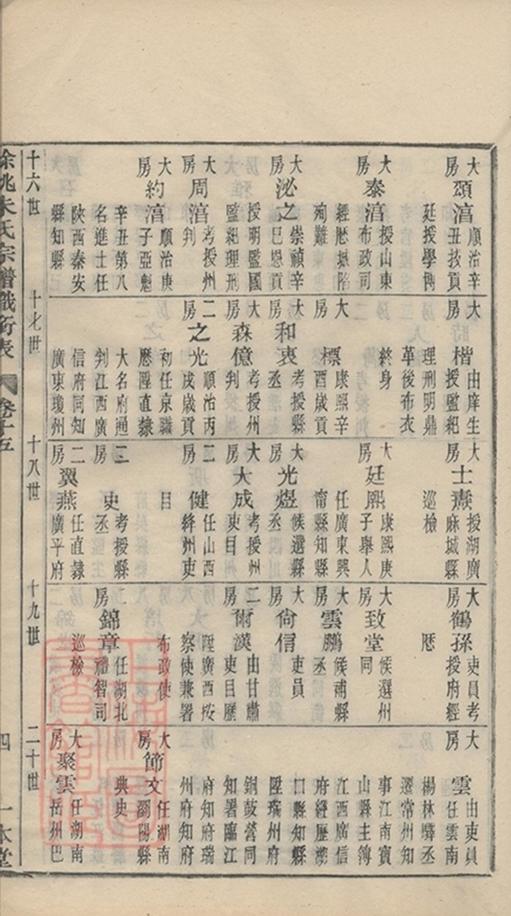 大房 頴淓 順治辛丑拔貢廷授學博
大房 泰淓 授山東布政司經歷城陷殉難
大房 泌之 崇禎辛巳恩貢授明監國監紀理刑
大房 周淓 考授州判
大房 約淓 順治庚子亞魁辛丑第八名進士任陝西秦安縣知縣
大房 楷 由庠生授監紀理刑明鼎革後布衣終身
大房 標 康熙辛酉歲貢
大房 和衷 考授縣丞
大房 森億 考授州判
二房 之光 順治丙戌歲貢初任京衞歷陞直隸大名府通判江西廣信府同知廣東瓊州
大房 士燾 授湖廣麻城縣巡檢
大房 廷熙 康熙庚子舉人任廣東興甯縣知縣
大房 光煜 候選縣丞
大房 大成 考授州吏目
二房 健 任山西絳州吏目
二房 史 考授縣丞
二房 翼燕 任直隸廣平府
大房 鶴孫 吏員考授府經歷
大房 致堂 候選州同
大房 雲鵬 候補縣丞
大房 尙信 吏員
二房 爾漢 由甘肅吏目歷陞廣西按察使兼署布政使
房 錦章 任湖北禮智司巡檢
大房 雲 由吏員任雲南楊林驛丞選常州知事江南寶山縣主簿江西廣信府經歷湖口縣知縣陞瑞州府銅鼓營同知署臨江府知府瑞州府知府
大房 節文 任湖南瀏陽縣典史
大房 聚雲 任湖南岳州巴
餘姚朱氏宗譜職銜表
卷十五
四
一本堂
十六世
十七世
十八世
十九世
二十世